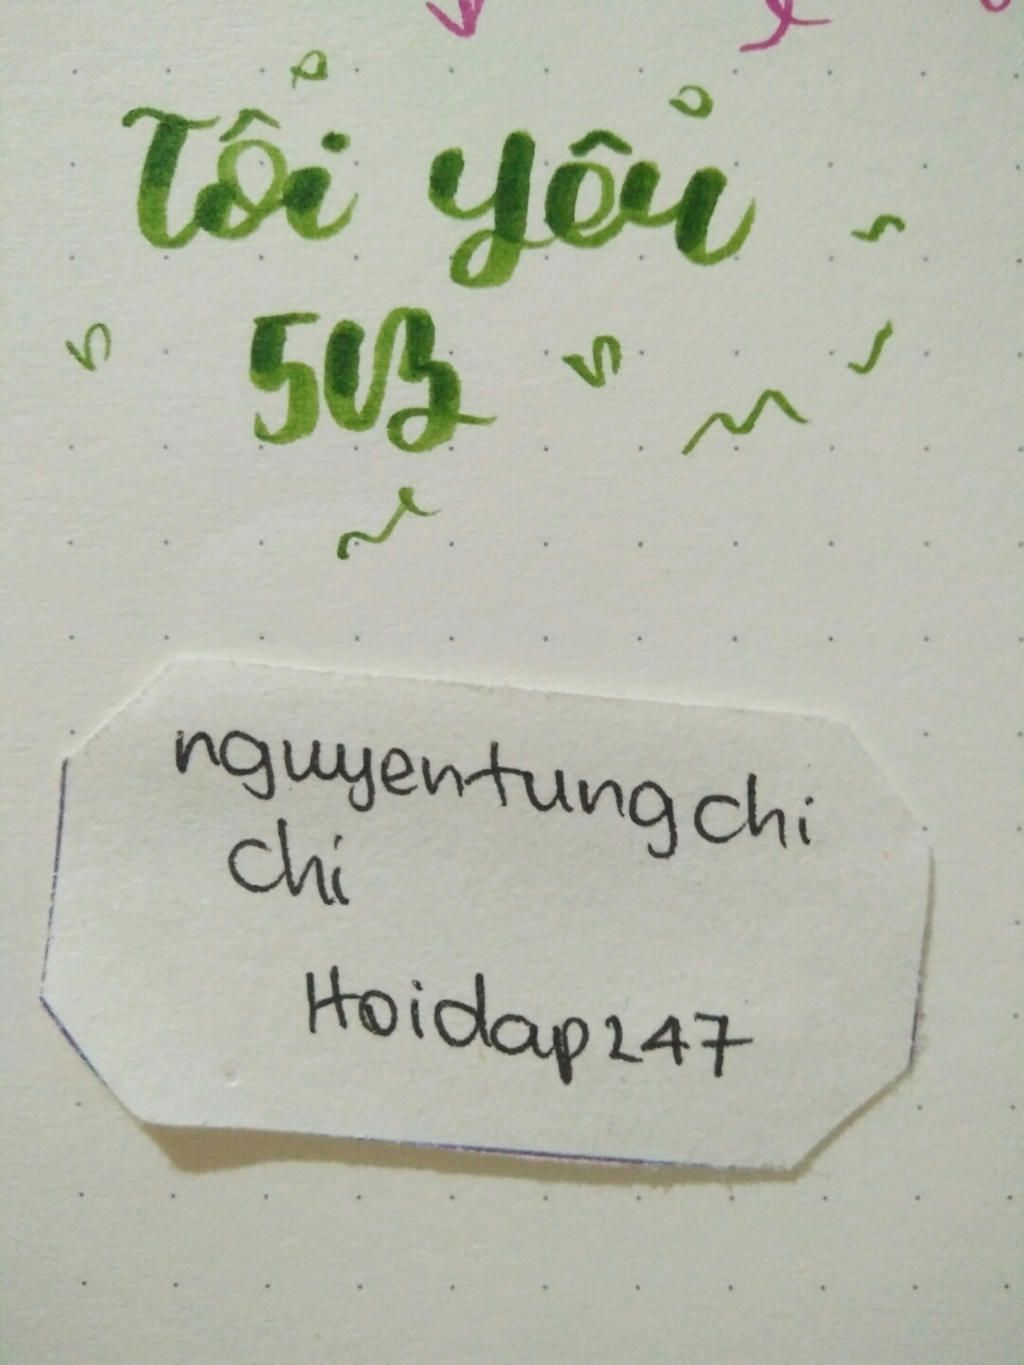 Tổi yểu
5B
nguyentungchi
chi
Hoidap247